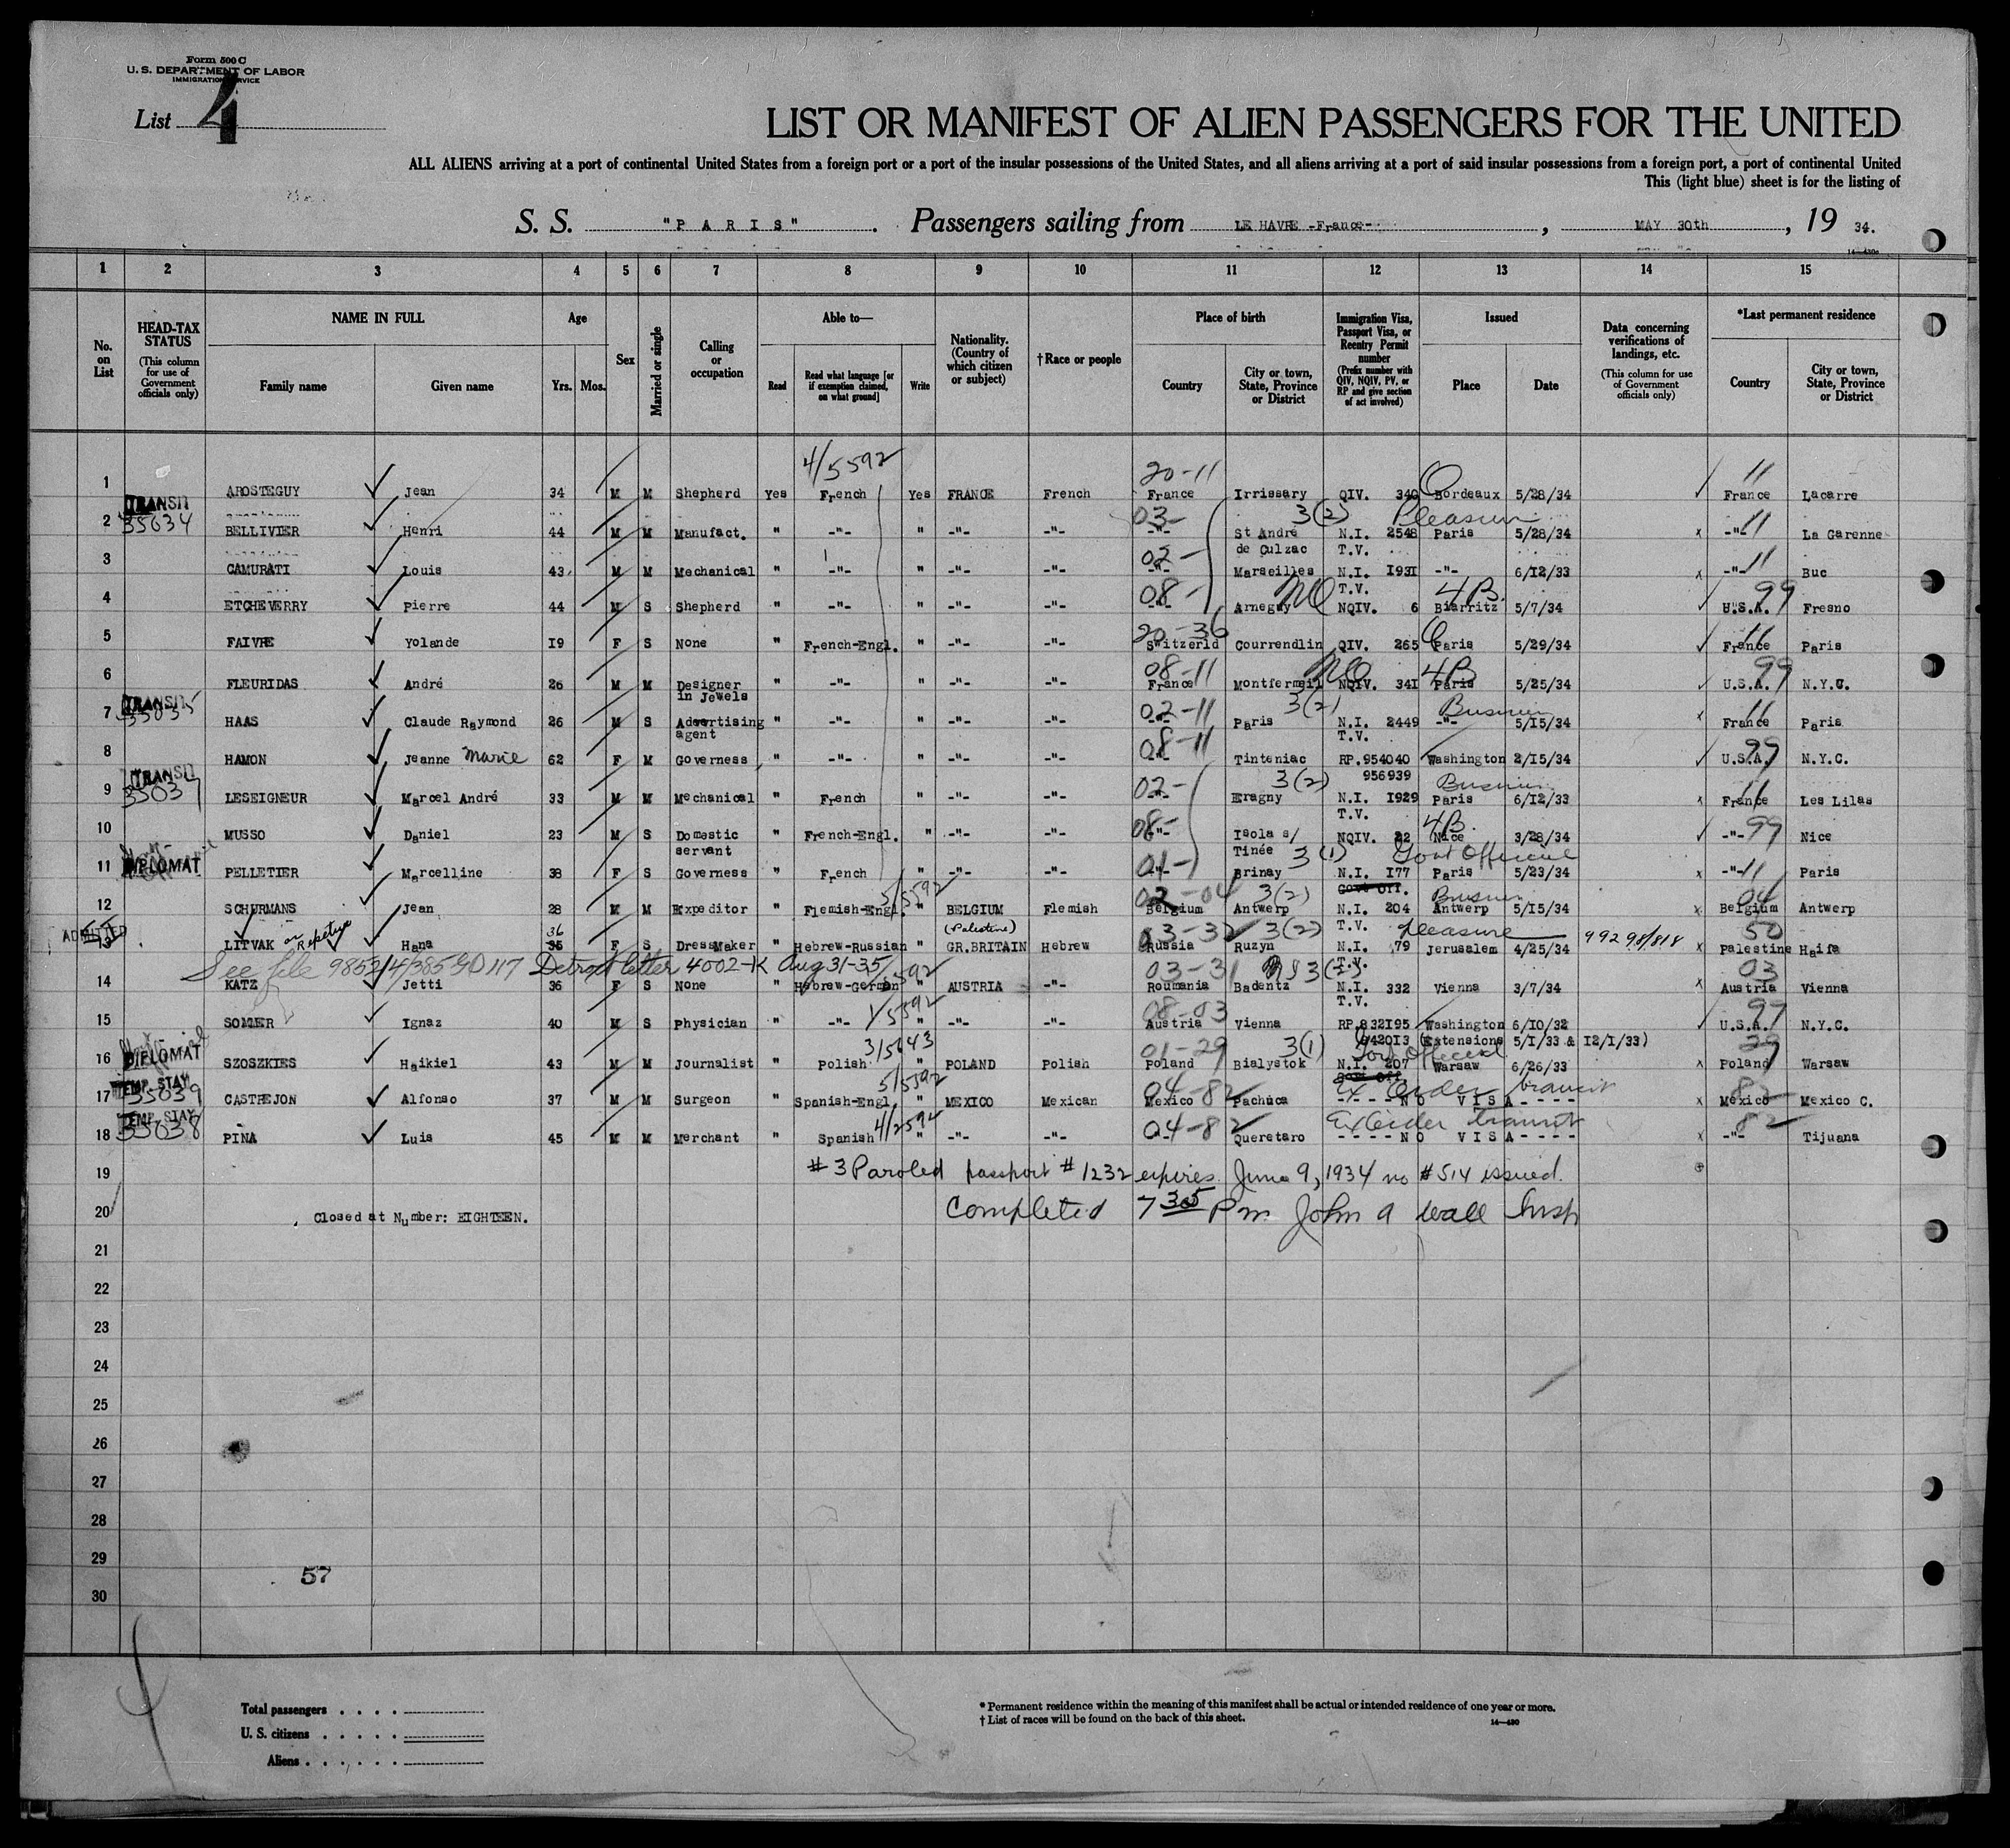 Form 500 C
U. S. DEPARTMENT OF LABOR
IMMIGRATION SERVICE
List 4
LIST OR MANIFEST OF ALIEN PASSENGERS FOR THE UNITED
ALL ALIENS arriving at a port of continental United States from a foreign port or a port of the insular possessions of the United States, and all aliens arriving at a port of said insular possessions from a foreign port, a port of continental United
This (light blue) sheet is for the listing of
S. S. "P A R I S". Passengers sailing from LE HAVRE -France-, MAY 30th, 19 34.
14—430c
1 2 3 4 5 6 7 8 9 10 11 12 13 14 15
No. on List
HEAD-TAX STATUS (This column for use of Government officials only)
NAME IN FULL Family name Given name
Age Yrs. Mos.
Sex
Married or single
Calling or occupation
Able to— Read Read what language [or if exemption claimed, on what ground] Write
Nationality. (Country of which citizen or subject)
†Race or people
Place of birth Country City or town, State, Province or District
Immigration Visa, Passport Visa, or Reentry Permit number (Prefix number with QIV, NQIV, PV, or RP and give section of act involved)
Issued Place Date
Data concerning verifications of landings, etc. (This column for use of Government officials only)
*Last permanent residence Country City or town, State, Province or District
4/5592 20-11 11
1 AROSTEGUY Jean 34 M M Shepherd Yes French Yes FRANCE French France Irrissary QIV. 340 Bordeaux 5/28/34 France Lacarre
TRANSIT 35034 03- 3(2) Pleasure 11
2 BELLIVIER Henri 44 M M Manufact. " -"- " -"- -"- -"- St André de Culzac N.I. 2548 T.V. Paris 5/28/34 -"- La Garenne
02- 11
3 CAMURATI Louis 43 M M Mechanical " -"- " -"- -"- -"- Marseilles N.I. 1931 T.V. -"- 6/12/33 -"- Buc
08- NQ 4 B. 99
4 ETCHEVERRY Pierre 44 M S Shepherd " -"- " -"- -"- -"- Arneguy NQIV. 6 Biarritz 5/7/34 U.S.A. Fresno
20-36 11
5 FAIVRE Yolande 19 F S None " French-Engl. " -"- -"- Switzerld Courrendlin QIV. 265 Paris 5/29/34 France Paris
08-11 NQ 4B 99
6 FLEURIDAS André 26 M M Designer in Jewels " -"- " -"- -"- France Montfermeil NQIV. 341 Paris 5/25/34 U.S.A. N.Y.C.
TRANSIT 35035 02-11 3(2) Business 11
7 HAAS Claude Raymond 26 M S Advertising agent " -"- " -"- -"- -"- Paris N.I. 2449 T.V. -"- 5/15/34 France Paris
08-11 99
8 HAMON Jeanne Marie 62 F M Governess " -"- " -"- -"- -"- Tinteniac RP.954040 956939 Washington 2/15/34 U.S.A. N.Y.C.
TRANSIT 35037 02- 3(2) Business 11
9 LESEIGNEUR Marcel André 33 M M Mechanical " French " -"- -"- -"- Eragny N.I. 1929 T.V. Paris 6/12/33 France Les Lilas
08- 4B. 99
10 MUSSO Daniel 23 M S Domestic servant " French-Engl. " -"- -"- -"- Isola s/ Tinée NQIV. 22 Nice 3/28/34 -"- Nice
DIPLOMAT 01- 3(1) Govt Official 11
11 PELLETIER Marcelline 38 F S Governess " French " -"- -"- -"- Brinay N.I. 177 Govt Off. Paris 5/23/34 -"- Paris
5/5592 02-04 3(2) Business 04
12 SCHURMANS Jean 28 M M Expeditor " Flemish-Engl. " BELGIUM Flemish Belgium Antwerp N.I. 204 T.V. Antwerp 5/15/34 Belgium Antwerp
ADMITTED or Repetur 36 (Palestine) 03-32 3(2) Pleasure 992 98/818 50
13 LITVAK Hana 35 F S Dress Maker " Hebrew-Russian " GR.BRITAIN Hebrew Russia Ruzyn N.I. 79 T.V. Jerusalem 4/25/34 Palestine Haifa
See file 98521/4/385 GD 117 Detroit letter 4002-K Aug 31-35
03-31 3(2) 03
14 KATZ Jetti 36 F S None " Hebrew-German " AUSTRIA -"- Roumania Badentz N.I. 332 T.V. Vienna 3/7/34 Austria Vienna
1/5592 08-03 99
15 SOMMER Ignaz 40 M S Physician " -"- " -"- -"- Austria Vienna RP.832195 Washington 6/10/32 U.S.A. N.Y.C.
942013 (Extensions 5/1/33 & 12/1/33)
DIPLOMAT 3/5643 01-29 3(1) Gov Official 29
16 SZOSZKIES Haikiel 43 M M Journalist " Polish " POLAND Polish Poland Bialystok N.I. 207 Govt Off Warsaw 6/26/33 Poland Warsaw
TEMP. STAY 35039 5/5592 04-82 Ex Order transit 82
17 CASTREJON Alfonso 37 M M Surgeon " Spanish-Engl. " MEXICO Mexican Mexico Pachuca - - - - N O V I S A - - - - Mexico Mexico C.
TEMP. STAY 35038 4/2592 04-82 Ex Order transit 82
18 PINA Luis 45 M M Merchant " Spanish " -"- -"- -"- Queretaro - - - - N O V I S A - - - - -"- Tijuana
19 # 3 Paroled passport # 1232 expires June 9, 1934 no # 514 issued.
20 Closed at Number: EIGHTEEN. Completed 7 35 Pm John A Wall Insp
21
22
23
24
25
26
27
28
29
57
30
Total passengers . . . .
U. S. citizens . . . . .
Aliens . . . . . .
* Permanent residence within the meaning of this manifest shall be actual or intended residence of one year or more.
† List of races will be found on the back of this sheet.
14—430